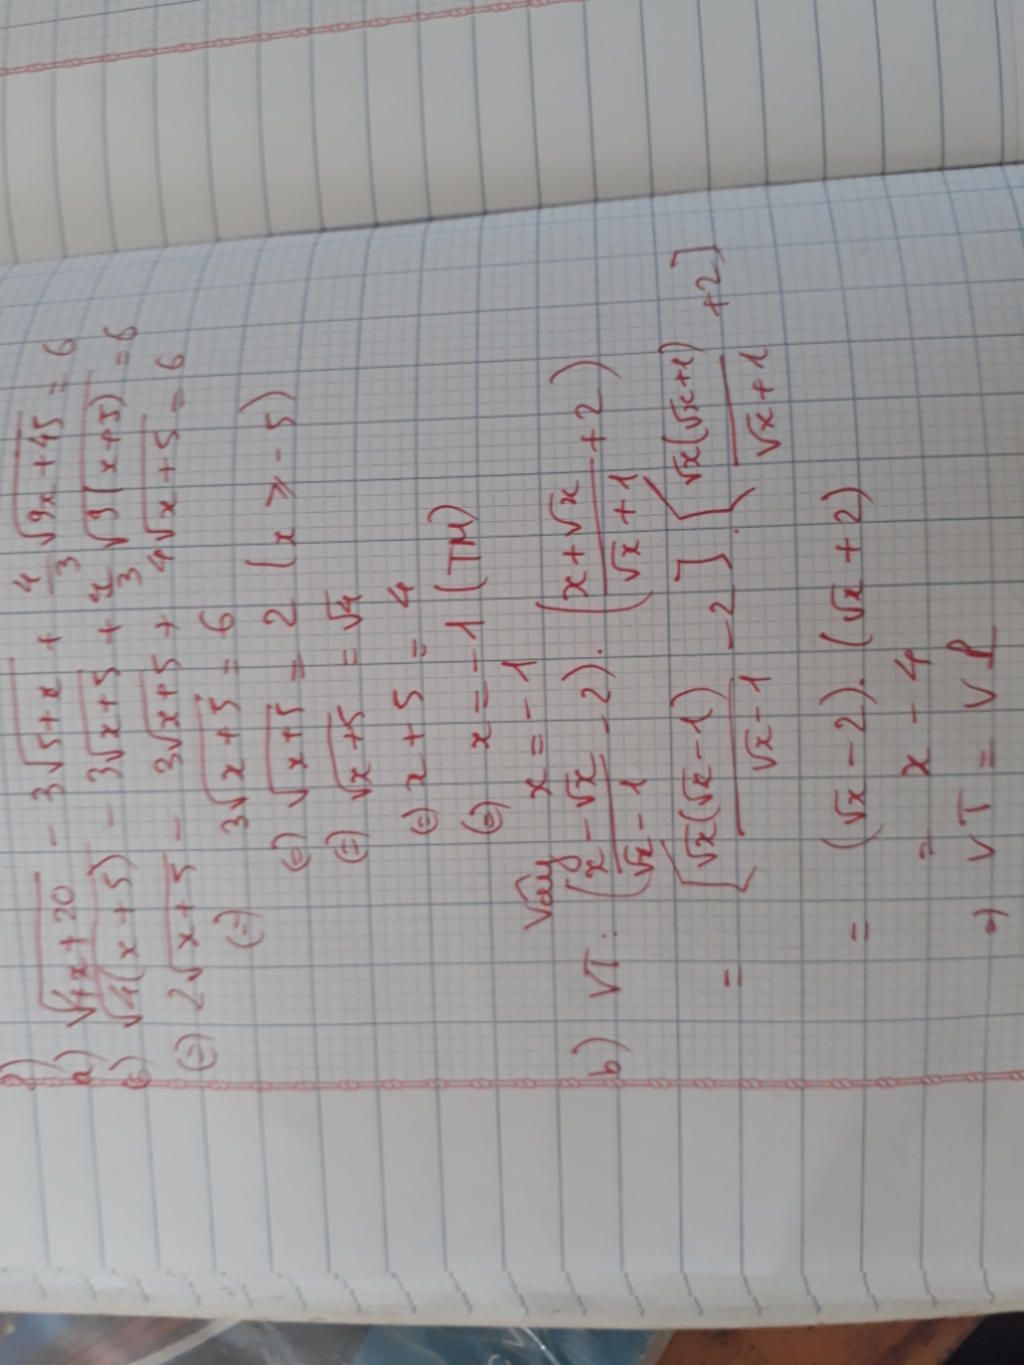 a) √4x+20 - 3√5+x + 4/3 √9x+45 = 6
(=) √4(x+5) - 3√x+5 + 4/3 √9(x+5) = 6
(=) 2√x+5 - 3√x+5 + 4√x+5 = 6
(=) 3√x+5 = 6
(=) √x+5 = 2 (x ≥ -5)
(=) √x+5 = √4
(=) x+5 = 4
(=) x = -1 (TM)
Vậy x = -1
b) VT: (x-√x/√x-1 - 2).(x+√x/√x+1 + 2)
= [√x(√x-1)/√x-1 - 2].[√x(√x+1)/√x+1 + 2]
= (√x-2).(√x+2)
= x-4
=> VT = VP